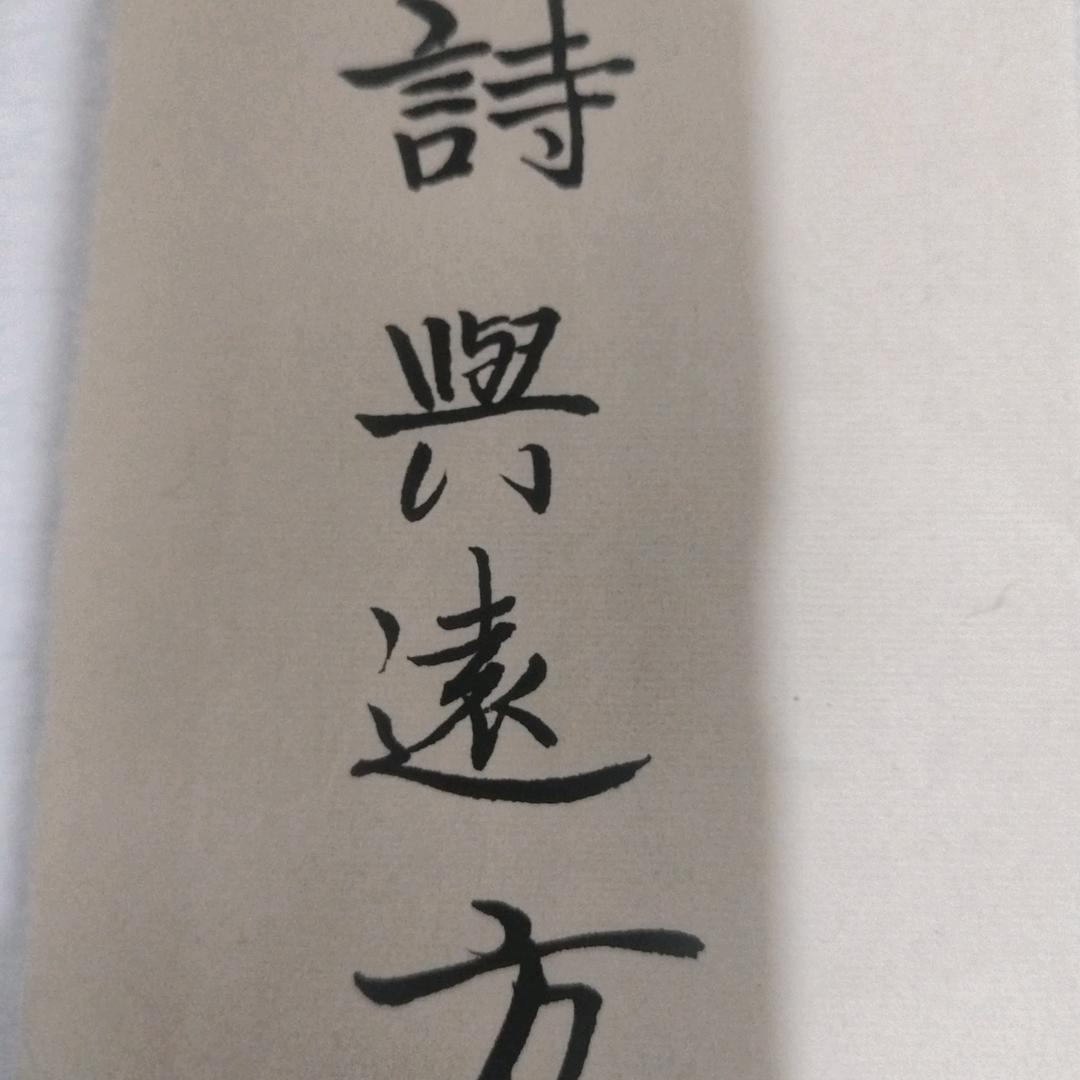 詩與遠方